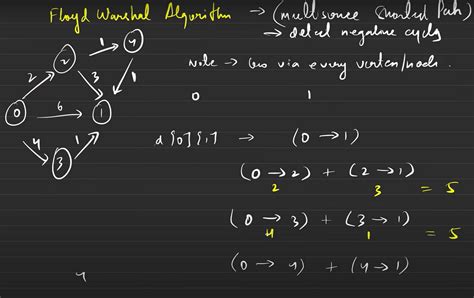 Floyd Warshal Algorithm → (multisource shortest Path)
→ detect negative cycles
Note → Go via every vertex/node.
0 1
d[0][1] → (0 → 1)
(0 → 2) + (2 → 1)
2 3 = 5
(0 → 3) + (3 → 1)
4 1 = 5
(0 → 4) + (4 → 1)
2
1
4
2
3
1
0
6
1
4
1
3
4